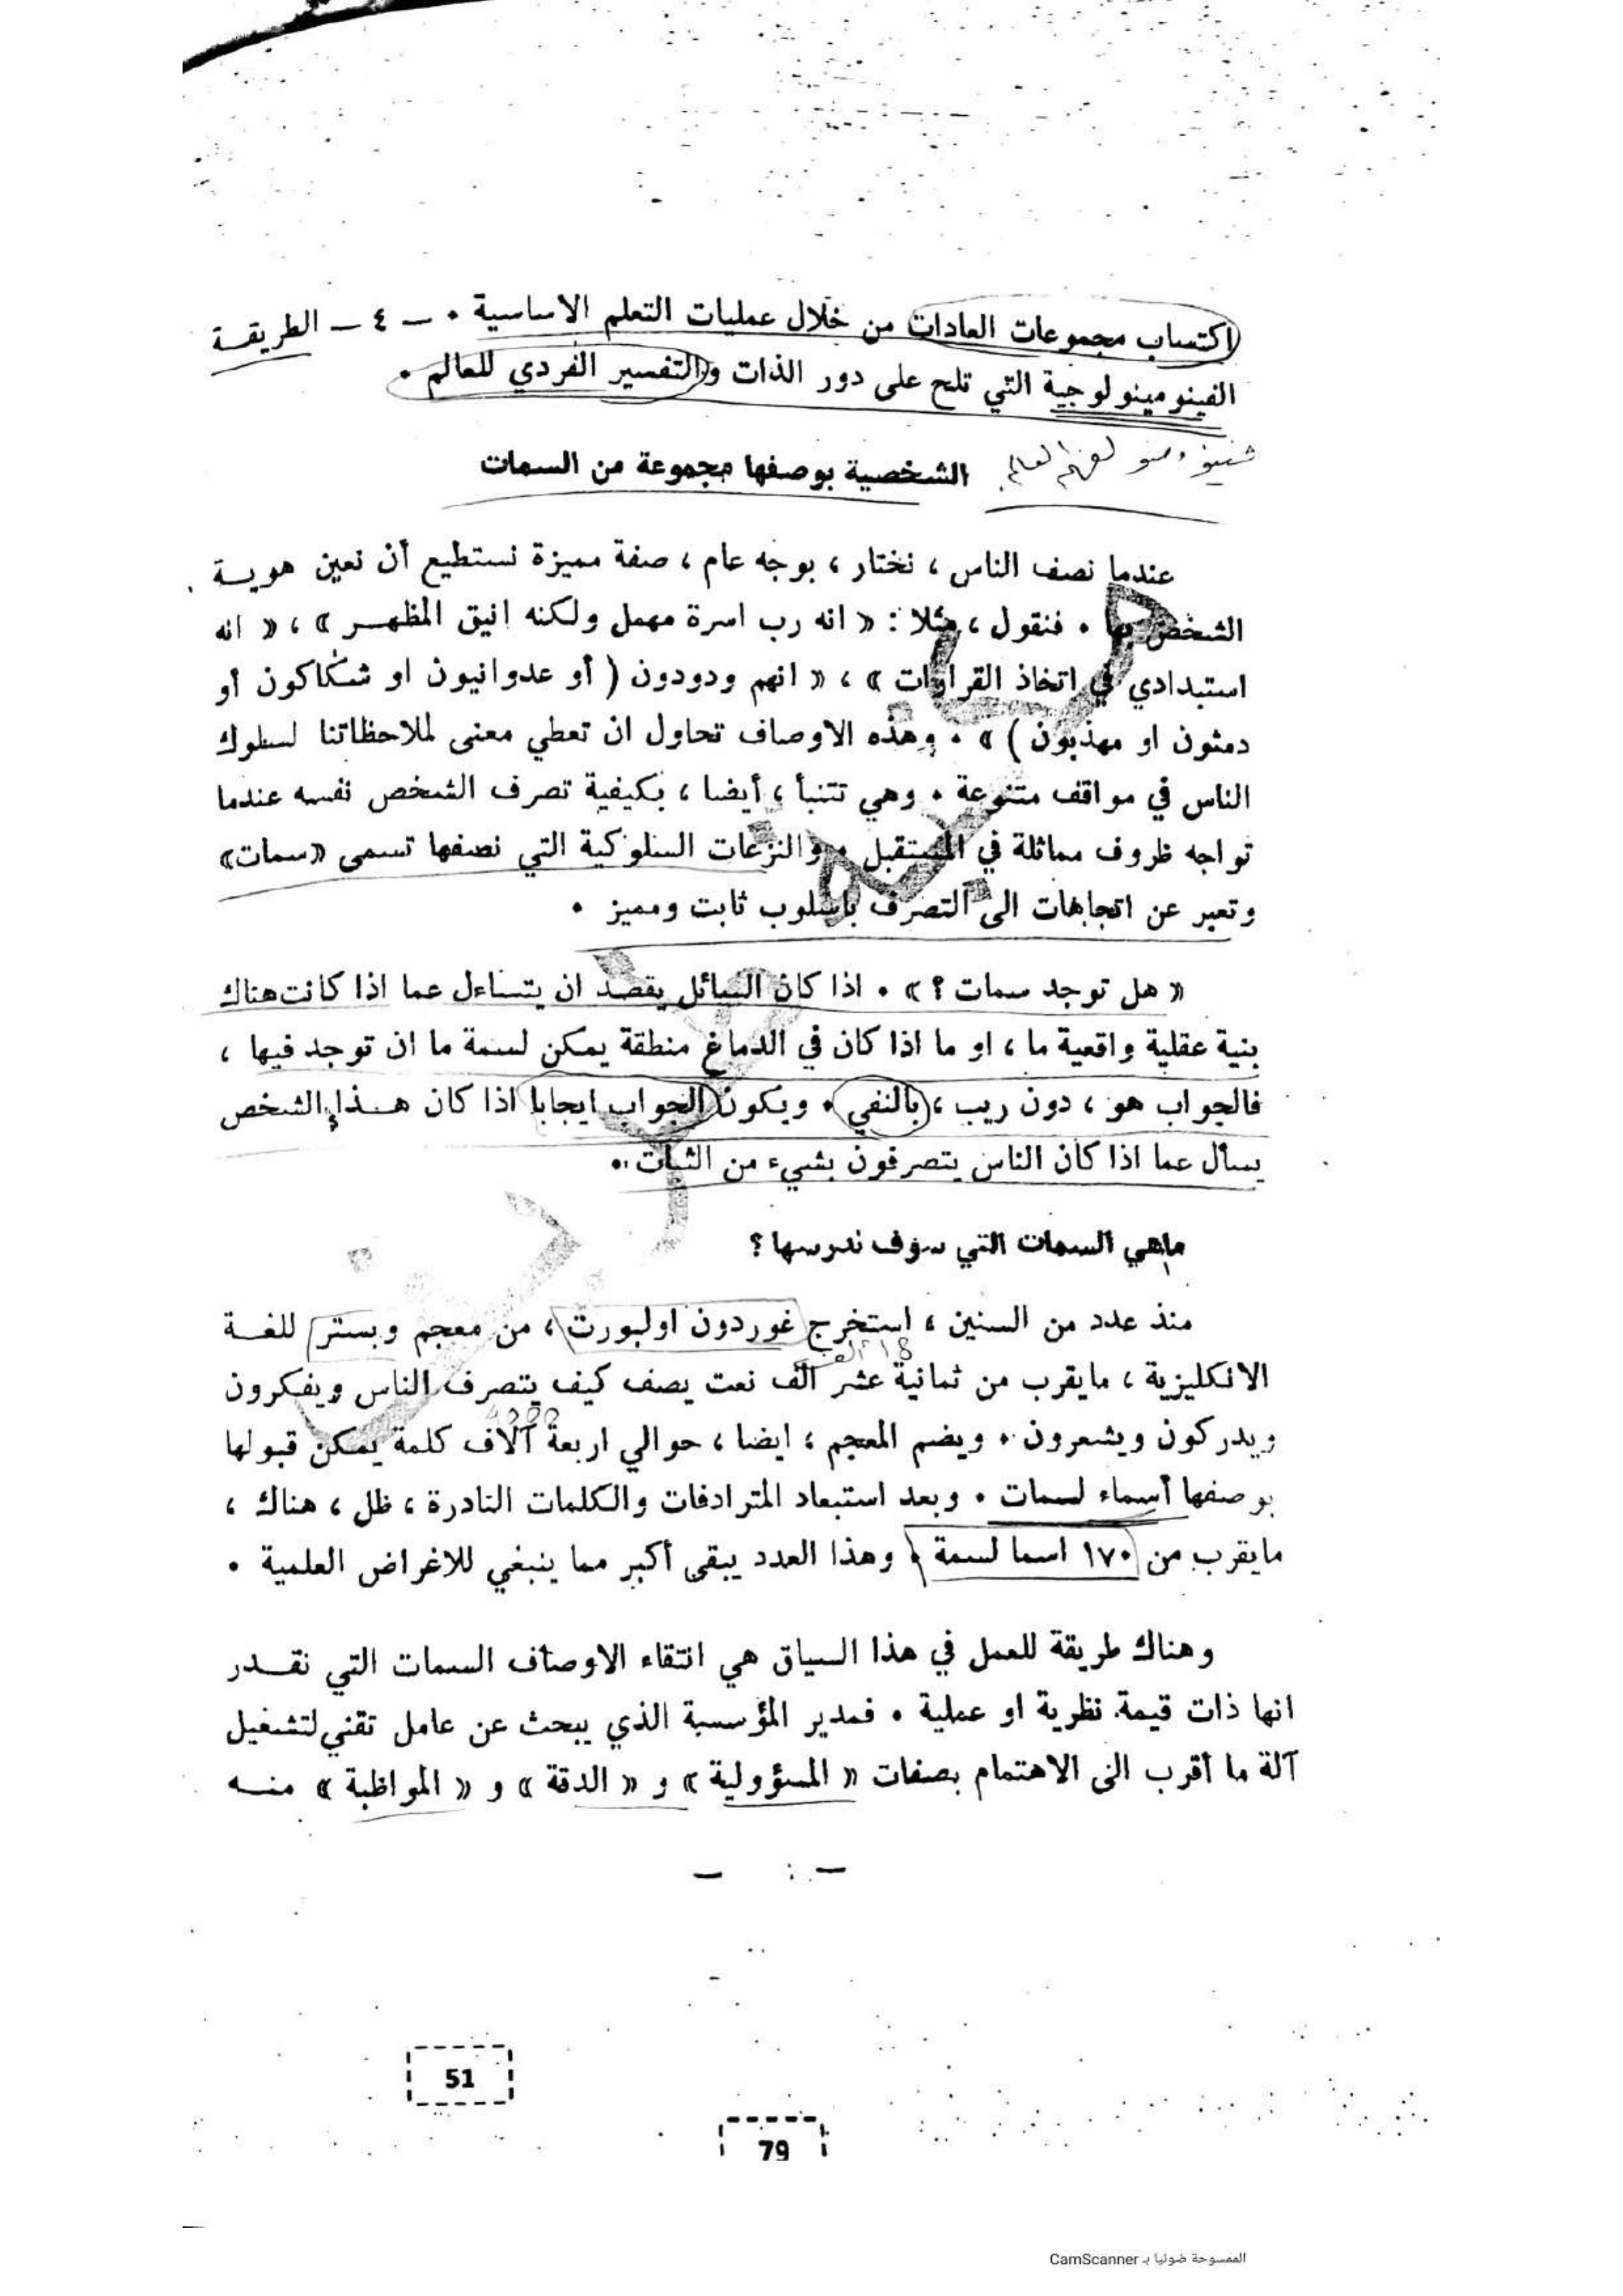 اكتساب مجموعات العادات من خلال عمليات التعلم الاساسية ٠ ــ ٤ ــ الطريقـة
الفينومينولوجية التي تلح على دور الذات والتفسير الفردي للعالم ٠
الشخصية بوصفها مجموعة من السمات
عندما نصف الناس ، نختار ، بوجه عام ، صفة مميزة نستطيع أن نعين هويـة
الشخص بها ٠ فنقول ، مثلا : « انه رب اسرة مهمل ولكنه انيق المظهـر » ، « انه
استبدادي في اتخاذ القرارات » ، « انهم ودودون ( أو عدوانيون او شكاكون أو
دمثون او مهذبون ) » ٠ وهذه الاوصاف تحاول ان تعطي معنى لملاحظاتنا لسلوك
الناس في مواقف متنوعة ٠ وهي تتنبأ ، أيضا ، بكيفية تصرف الشخص نفسه عندما
تواجه ظروف مماثلة في المستقبل ٠ والنزعات السلوكية التي نصفها تسمى «سمات»
وتعبر عن اتجاهات الى التصرف بأسلوب ثابت ومميز ٠
« هل توجد سمات ؟ » ٠ اذا كان السائل يقصد ان يتساءل عما اذا كانت هناك
بنية عقلية واقعية ما ، او ما اذا كان في الدماغ منطقة يمكن لسمة ما ان توجد فيها ،
فالجواب هو ، دون ريب ، بالنفي ٠ ويكون الجواب ايجابا اذا كان هـذا الشخص
يسأل عما اذا كان الناس يتصرفون بشيء من الثبات ٠
ماهي السمات التي سوف ندرسها ؟
منذ عدد من السنين ، استخرج غوردون اولبورت ، من معجم وبستر للغـة
الانكليزية ، مايقرب من ثمانية عشر الف نعت يصف كيف يتصرف الناس ويفكرون
ويدركون ويشعرون ٠ ويضم المعجم ، ايضا ، حوالي اربعة آلاف كلمة يمكن قبولها
بوصفها أسماء لسمات ٠ وبعد استبعاد المترادفات والكلمات النادرة ، ظل ، هناك ،
مايقرب من ١٧٠ اسما لسمة ٠ وهذا العدد يبقى أكبر مما ينبغي للاغراض العلمية ٠
وهناك طريقة للعمل في هذا السياق هي انتقاء الاوصاف السمات التي نقـدر
انها ذات قيمة نظرية او عملية ٠ فمدير المؤسسة الذي يبحث عن عامل تقني لتشغيل
آلة ما أقرب الى الاهتمام بصفات « المسؤولية » و « الدقة » و « المواظبة » منـه
51
79
الممسوحة ضوئيا بـ CamScanner